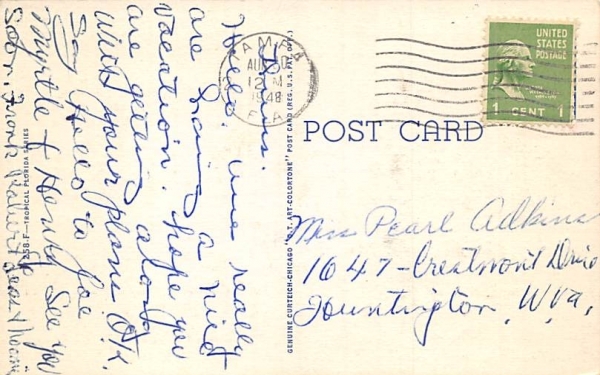 Thurs.
Hello. We really
are having a nice
vacation. hope you
are getting along
with your plans O.K.
Say Hello to Joe
Myrtle & Henry See you
Soon
258-F—TROPICAL FLORIDA SERIES
GENUINE CURTEICH-CHICAGO "C.T. ART-COLORTONE" POST CARD (REG. U.S. PAT. OFF.)
TAMPA
AUG
12 M
1948
FLA
UNITED
STATES
POSTAGE
1 CENT 1
POST CARD
Miss Pearl Adkins
1647-Crestmont Drive
Huntington, W.Va.